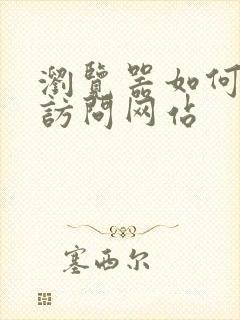 瀏覽器如何
訪問网佔
塞西尔